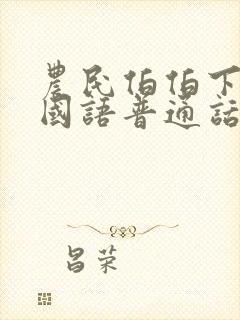 農民伯伯下
國語普通話
昌荣